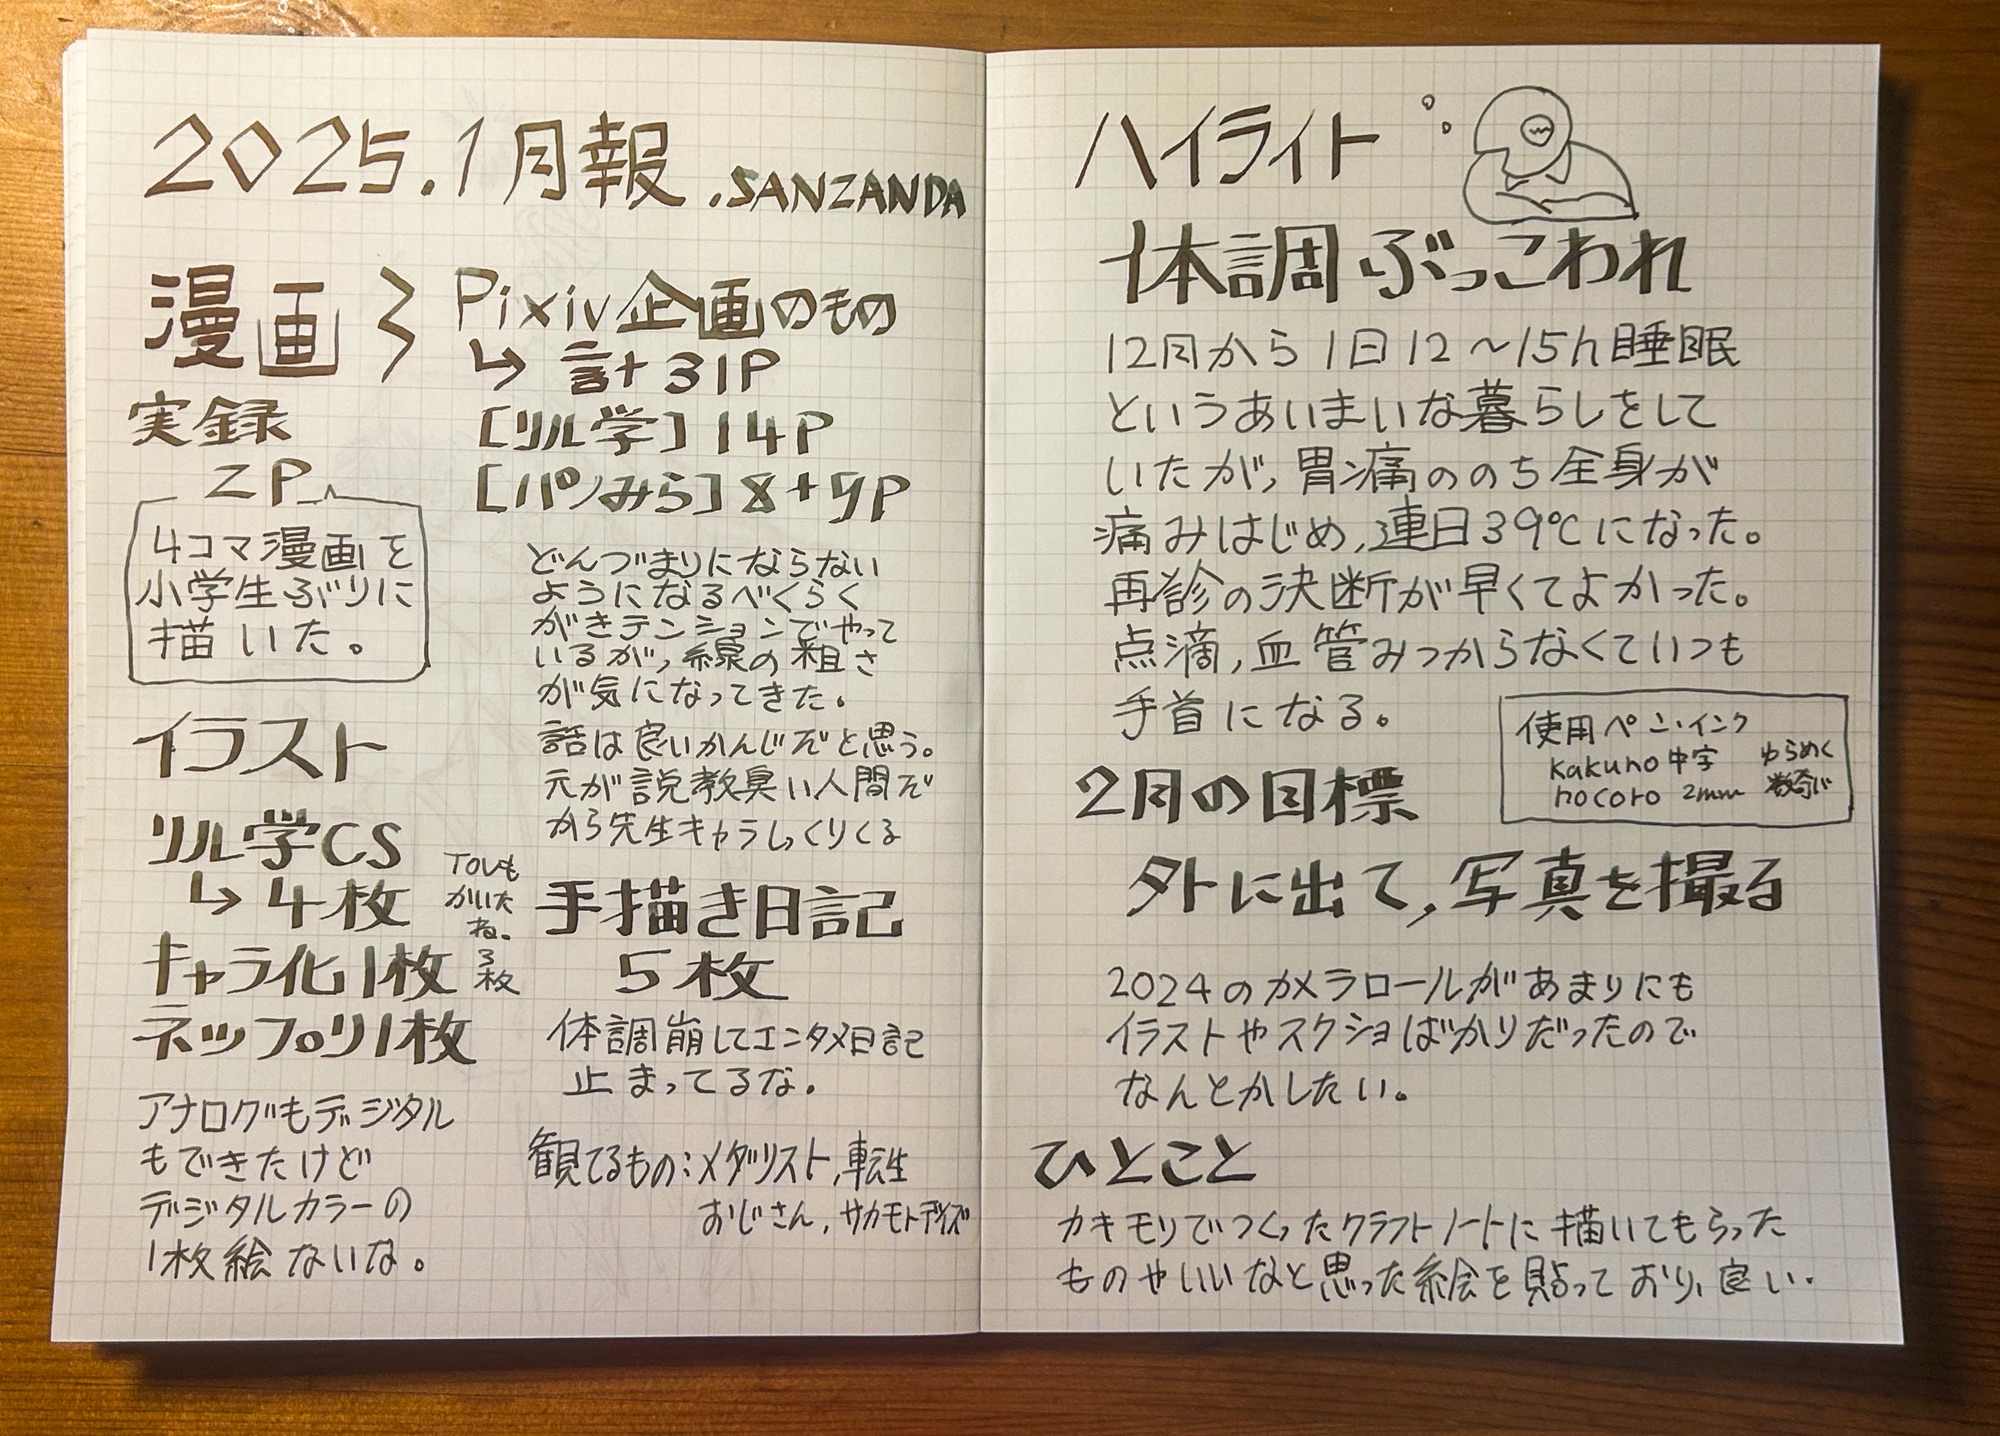 2025.1月報 .SANZANDA
漫画
実録
2P
4コマ漫画を
小学生ぶりに
描いた。
Pixiv企画のもの
↳ 計31P
[リル学] 14P
[パンみら] 8+9P
どんづまりにならない
ようになるべくらく
がきテンションでやって
いるが,線の粗さ
が気になってきた。
話は良いかんじだと思う。
元が説教臭い人間だ
から先生キャラしっくりくる
イラスト
リル学CS
↳ 4枚
キャラ化1枚
ネップリ1枚
TOLも
かいた
ね、
3
枚
アナログもデジタル
もできたけど
デジタルカラーの
1枚絵ないな。
手描き日記
5枚
体調崩してエンタメ日記
止まってるな。
観てるもの:メダリスト,転生
おじさん,サカモトデイズ
ハイライト
体調ぶっこわれ
12月から1日12〜15h睡眠
というあいまいな暮らしをして
いたが,胃痛ののち全身が
痛みはじめ,連日39℃になった。
再診の決断が早くてよかった。
点滴,血管みつからなくていつも
手首になる。
使用ペン・インク
kakuno 中字 ゆらめく
nocoro 2mm
2月の目標
外に出て,写真を撮る
2024のカメラロールがあまりにも
イラストやスクショばかりだったので
なんとかしたい。
ひとこと
カキモリでつくったクラフトノートに描いてもらった
ものやいいなと思った絵を貼っており,良い.